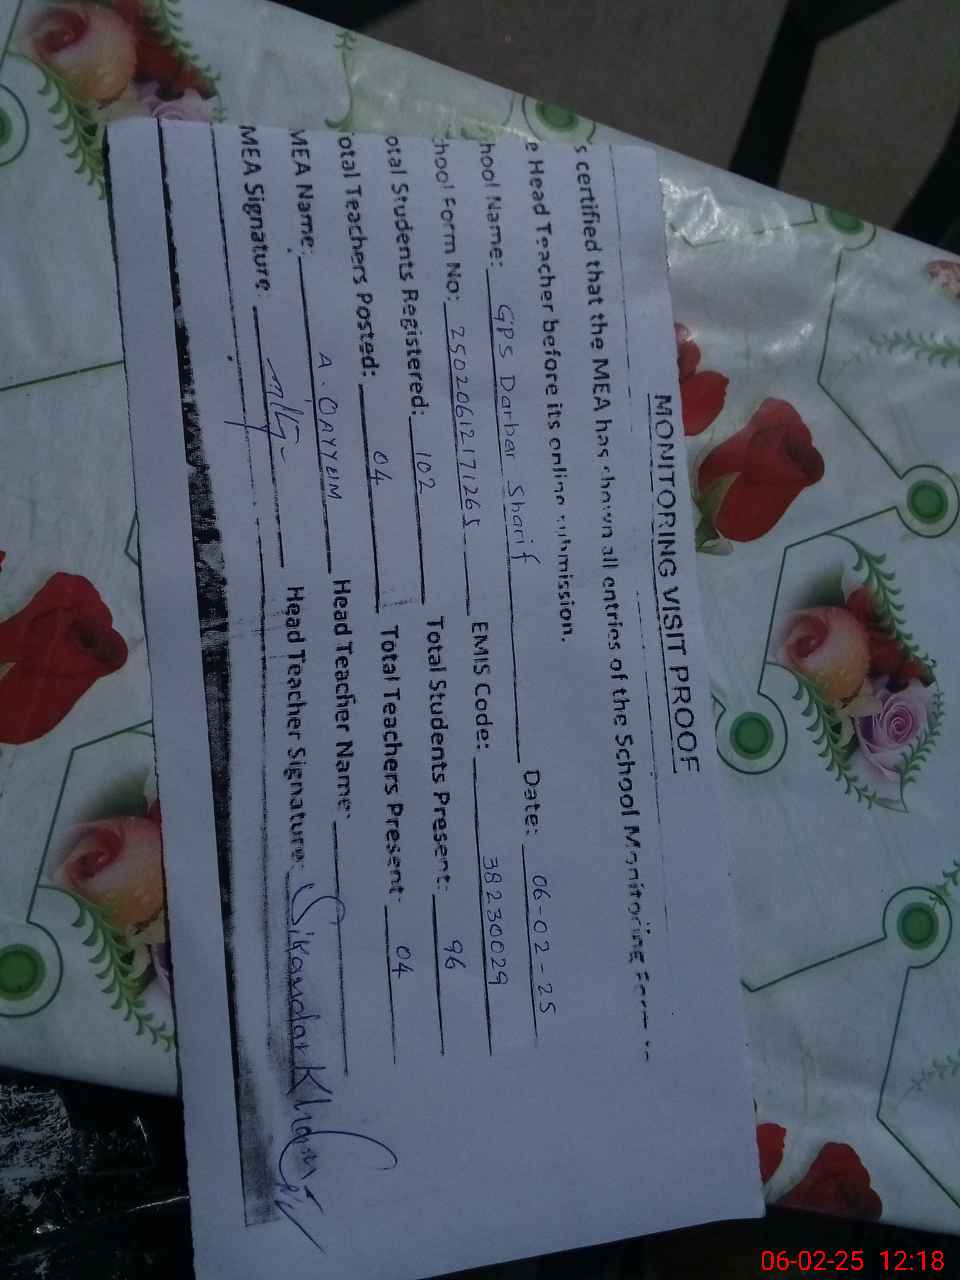 MONITORING VISIT PROOF
s certified that the MEA has shown all entries of the School Monitoring Form to
e Head Teacher before its online submission.
hool Name: GPS Darbar Sharif Date: 06-02-25
hool Form No: 25020612171265 EMIS Code: 38230029
otal Students Registered: 102 Total Students Present: 96
otal Teachers Posted: 04 Total Teachers Present: 04
MEA Name: A. QAYYUM Head Teacher Name:
MEA Signature: Head Teacher Signature: Sikandar Khan
06-02-25 12:18